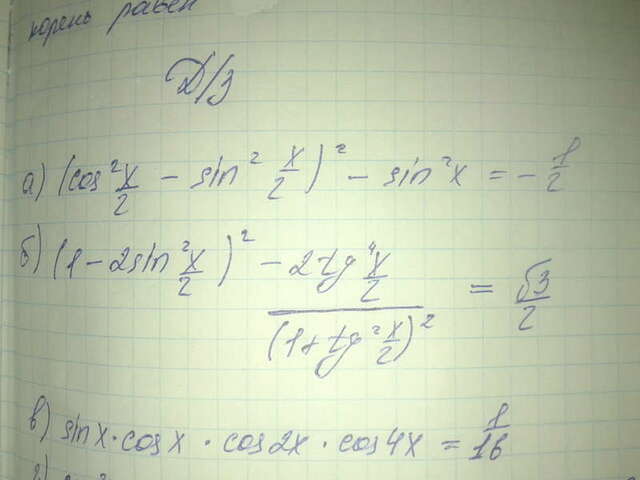 корень равен
Д/З
а) (cos² x/2 − sin² x/2)² − sin²x = − 1/2
б) (1 − 2sin² x/2)² − 2tg⁴ x/2 / (1 + tg² x/2)² = √3/2
в) sinx · cosx · cos2x · cos4x = 1/16
г)